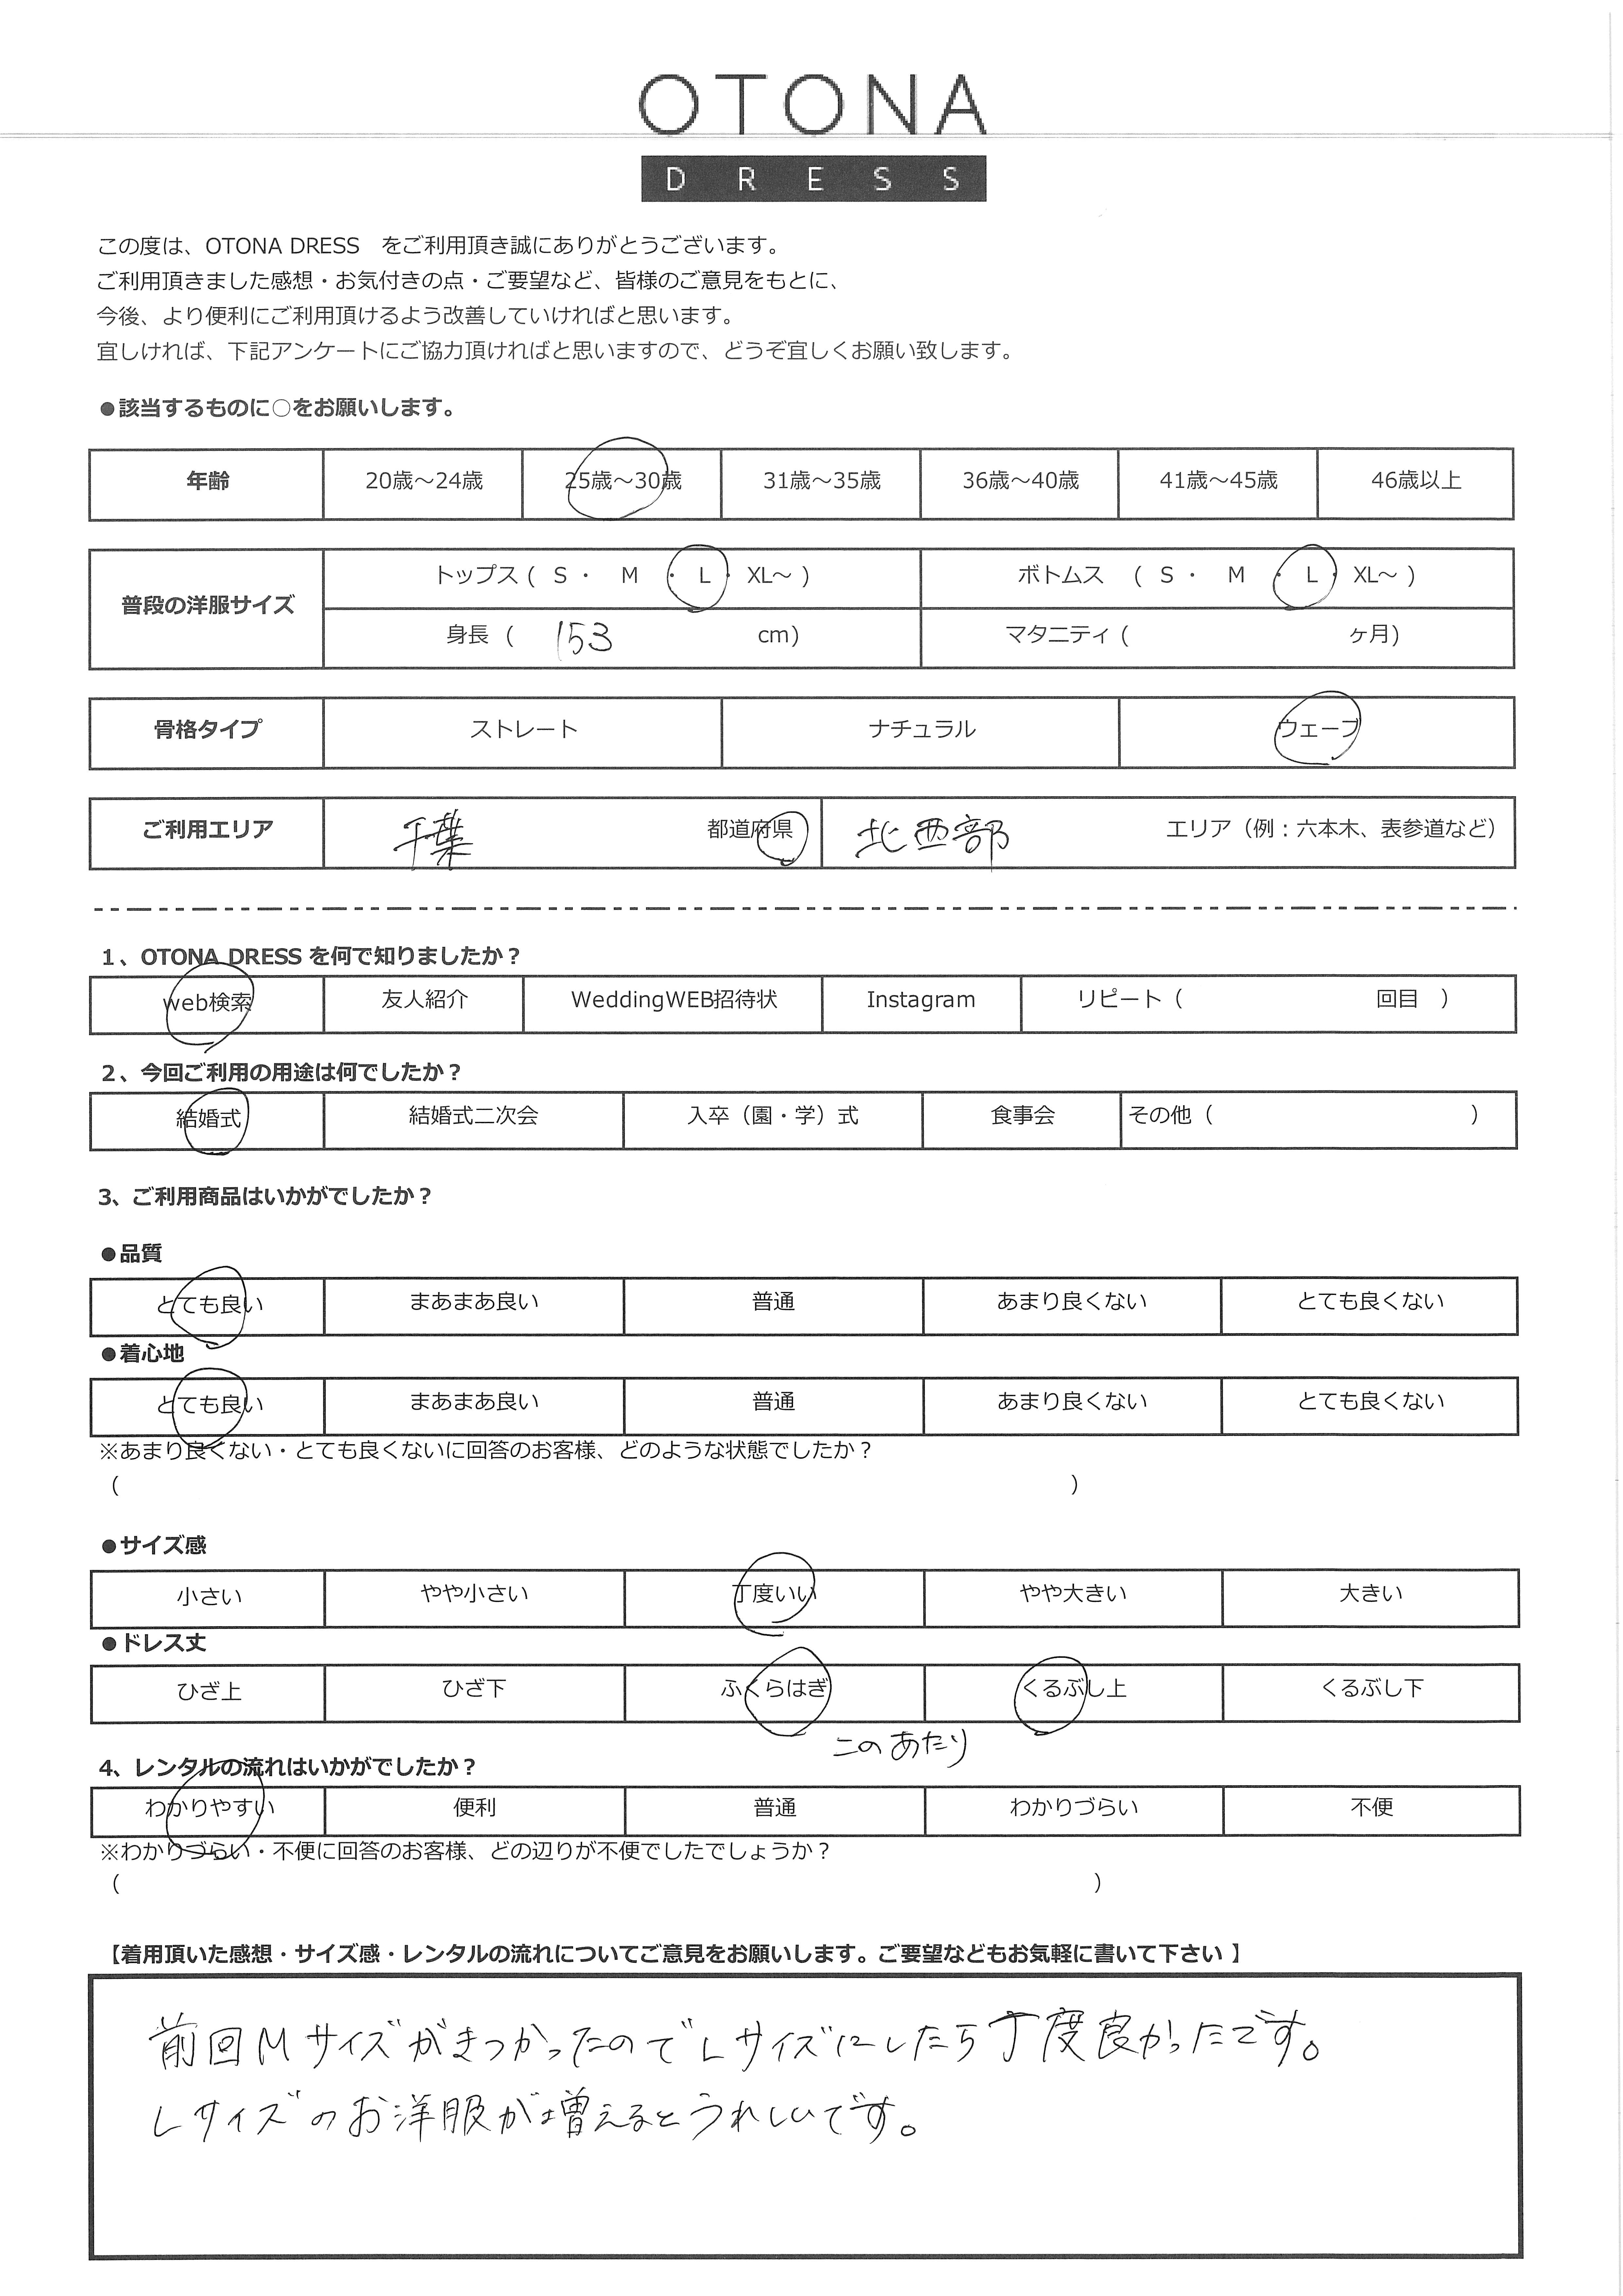 OTONA
DRESS
この度は、OTONA DRESS　をご利用頂き誠にありがとうございます。
ご利用頂きました感想・お気付きの点・ご要望など、皆様のご意見をもとに、
今後、より便利にご利用頂けるよう改善していければと思います。
宜しければ、下記アンケートにご協力頂ければと思いますので、どうぞ宜しくお願い致します。
●該当するものに○をお願いします。
年齢 20歳～24歳 25歳～30歳 31歳～35歳 36歳～40歳 41歳～45歳 46歳以上
普段の洋服サイズ トップス ( S ・ M ・ L ・ XL～ ) ボトムス ( S ・ M ・ L ・ XL～ )
身長 ( 153 cm) マタニティ ( ヶ月)
骨格タイプ ストレート ナチュラル ウェーブ
ご利用エリア 千葉 都道府県 北西部 エリア（例：六本木、表参道など）
1、OTONA DRESS を何で知りましたか？
web検索 友人紹介 WeddingWEB招待状 Instagram リピート（ 回目 ）
2、今回ご利用の用途は何でしたか？
結婚式 結婚式二次会 入卒（園・学）式 食事会 その他（ ）
3、ご利用商品はいかがでしたか？
●品質
とても良い まあまあ良い 普通 あまり良くない とても良くない
●着心地
とても良い まあまあ良い 普通 あまり良くない とても良くない
※あまり良くない・とても良くないに回答のお客様、どのような状態でしたか？
（ ）
●サイズ感
小さい やや小さい 丁度いい やや大きい 大きい
●ドレス丈
ひざ上 ひざ下 ふくらはぎ くるぶし上 くるぶし下
このあたり
4、レンタルの流れはいかがでしたか？
わかりやすい 便利 普通 わかりづらい 不便
※わかりづらい・不便に回答のお客様、どの辺りが不便でしたでしょうか？
（ ）
【着用頂いた感想・サイズ感・レンタルの流れについてご意見をお願いします。ご要望などもお気軽に書いて下さい 】
前回Mサイズがきつかったのでレサイズにしたら丁度良かったです。
Lサイズのお洋服が増えるとうれしいです。